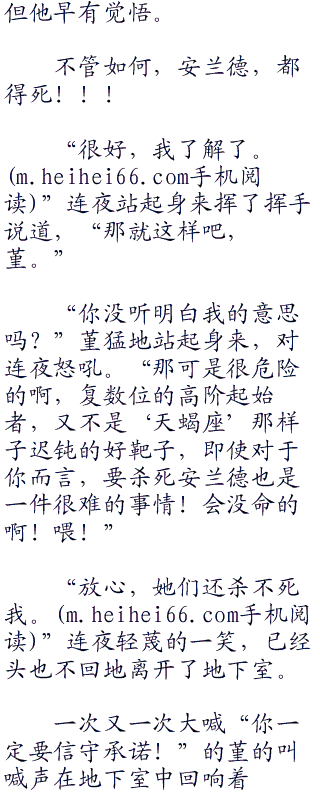 但他早有觉悟。
不管如何，安兰德，都
得死！！！
“很好，我了解了。
(m.heihei66.com手机阅
读)”连夜站起身来挥了挥手
说道，“那就这样吧，
堇。”
“你没听明白我的意思
吗？”堇猛地站起身来，对
连夜怒吼。“那可是很危险
的啊，复数位的高阶起始
者，又不是‘天蝎座’那样
子迟钝的好靶子，即使对于
你而言，要杀死安兰德也是
一件很难的事情！会没命的
啊！喂！”
“放心，她们还杀不死
我。(m.heihei66.com手机阅
读)”连夜轻蔑的一笑，已经
头也不回地离开了地下室。
一次又一次大喊“你一
定要信守承诺！”的堇的叫
喊声在地下室中回响着